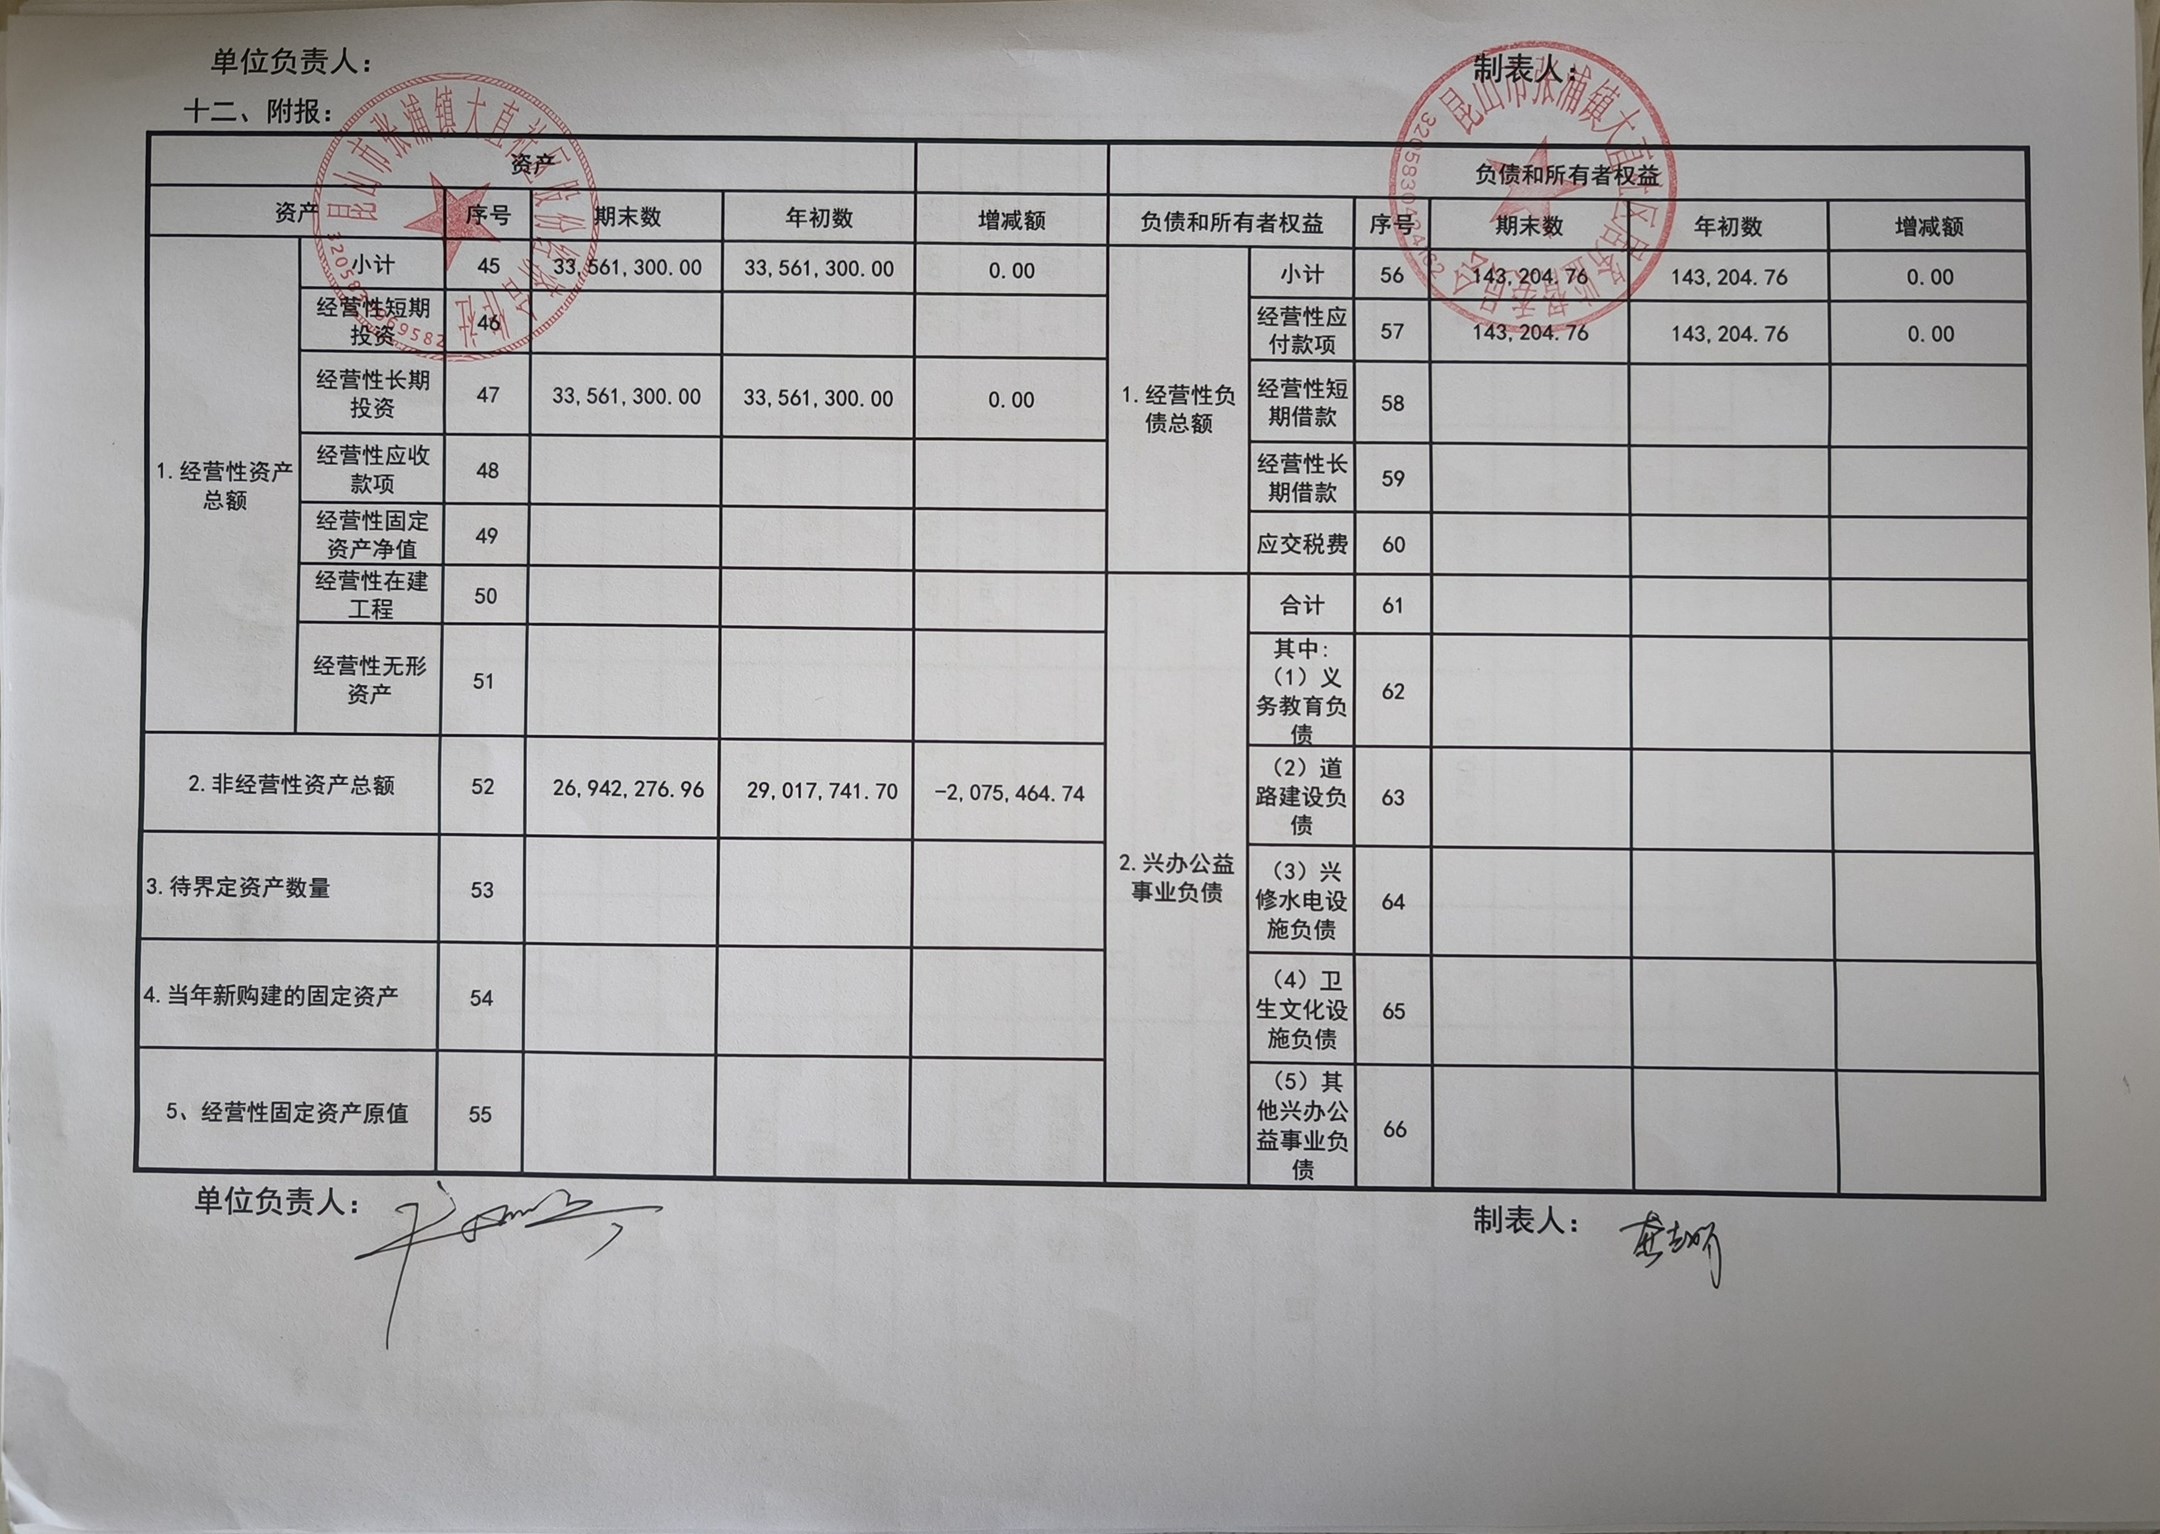 单位负责人：
制表人：
十二、附报：
资产
负债和所有者权益
资产 序号 期末数 年初数 增减额 负债和所有者权益 序号 期末数 年初数 增减额
1.经营性资产
总额
小计 45 33,561,300.00 33,561,300.00 0.00
经营性短期
投资 46
经营性长期
投资 47 33,561,300.00 33,561,300.00 0.00
经营性应收
款项 48
经营性固定
资产净值 49
经营性在建
工程 50
经营性无形
资产 51
2.非经营性资产总额 52 26,942,276.96 29,017,741.70 -2,075,464.74
3.待界定资产数量 53
4.当年新购建的固定资产 54
5、经营性固定资产原值 55
1.经营性负
债总额
小计 56 143,204.76 143,204.76 0.00
经营性应
付款项 57 143,204.76 143,204.76 0.00
经营性短
期借款 58
经营性长
期借款 59
应交税费 60
2.兴办公益
事业负债
合计 61
其中：
（1）义
务教育负
债 62
（2）道
路建设负
债 63
（3）兴
修水电设
施负债 64
（4）卫
生文化设
施负债 65
（5）其
他兴办公
益事业负
债 66
单位负责人：
制表人：
昆山市张浦镇大直社区股份经济合作社
昆山市张浦镇大直社区居务监督委员会